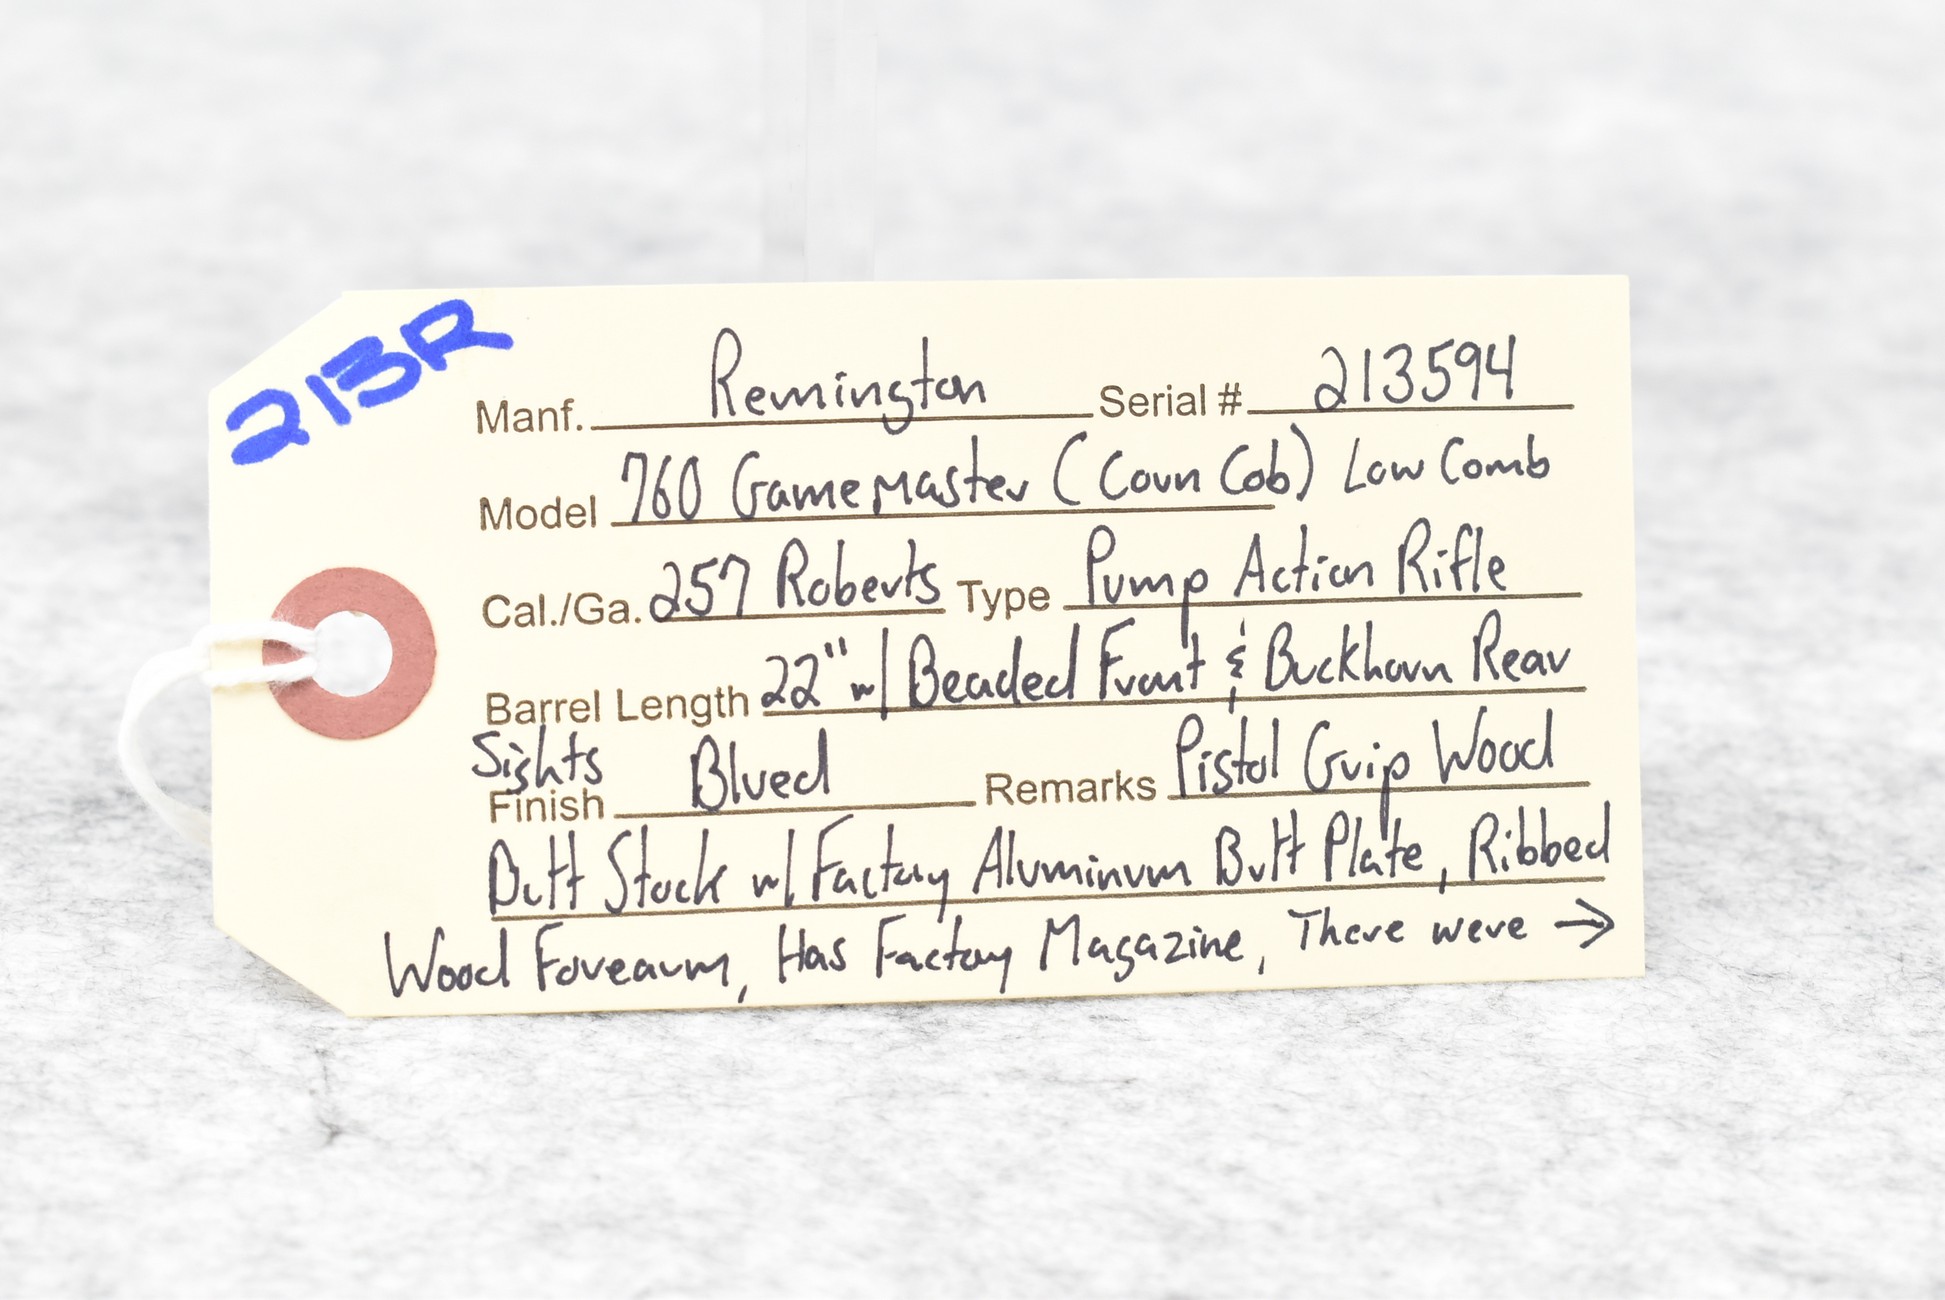 213R
Manf. Remington Serial # 213594
Model 760 Gamemaster (Corn Cob) Low Comb
Cal./Ga. 257 Roberts Type Pump Action Rifle
Barrel Length 22" w/ Beaded Front & Buckhorn Rear
Sights
Finish Blued Remarks Pistol Grip Wood
Butt Stock w/ Factory Aluminum Butt Plate, Ribbed
Wood Forearm, Has Factory Magazine, There were →